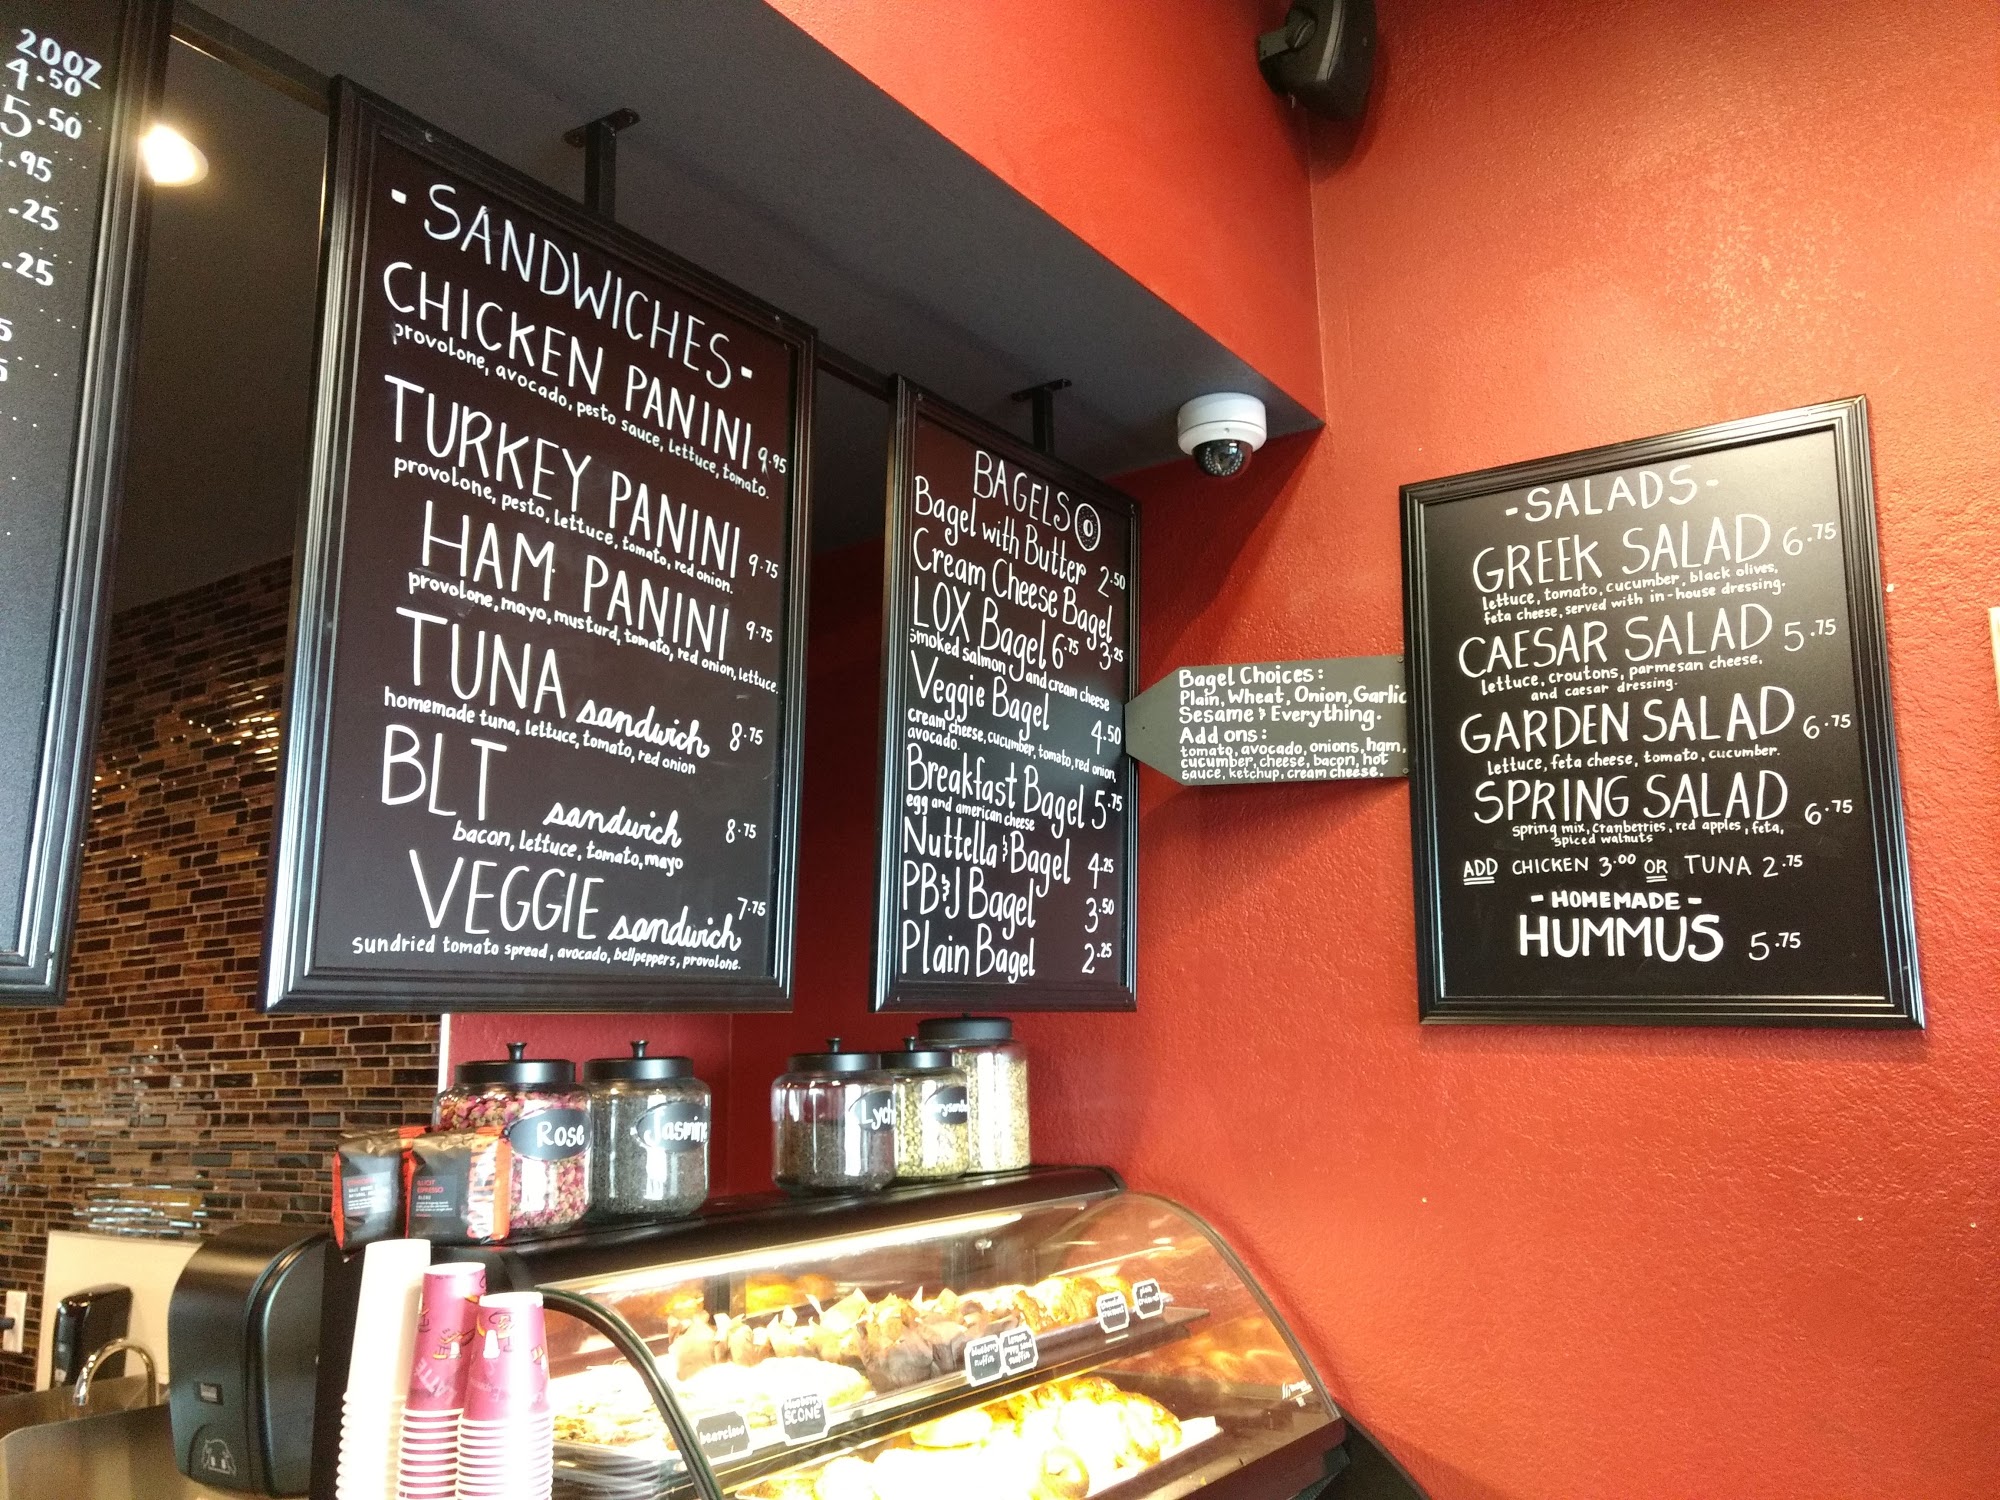 20OZ
4.50
5.50
.95
.25
.25
- SANDWICHES -
CHICKEN PANINI 9.95
provolone, avocado, pesto sauce, lettuce, tomato.
TURKEY PANINI 9.75
provolone, pesto, lettuce, tomato, red onion.
HAM PANINI 9.75
provolone, mayo, musturd, tomato, red onion, lettuce.
TUNA sandwich 8.75
homemade tuna, lettuce, tomato, red onion
BLT sandwich 8.75
bacon, lettuce, tomato, mayo
VEGGIE sandwich 7.75
sundried tomato spread, avocado, bellpeppers, provolone.
BAGELS
Bagel with Butter 2.50
Cream Cheese Bagel 3.25
LOX Bagel 6.75
smoked salmon and cream cheese
Veggie Bagel 4.50
cream cheese, cucumber, tomato, red onion,
avocado.
Breakfast Bagel 5.75
egg and american cheese
Nuttella & Bagel 4.25
PB&J Bagel 3.50
Plain Bagel 2.25
Bagel Choices:
Plain, Wheat, Onion, Garlic
Sesame & Everything.
Add ons:
tomato, avocado, onions, ham,
cucumber, cheese, bacon, hot
sauce, ketchup, cream cheese.
- SALADS -
GREEK SALAD 6.75
lettuce, tomato, cucumber, black olives,
feta cheese, served with in-house dressing.
CAESAR SALAD 5.75
lettuce, croutons, parmesan cheese,
and caesar dressing.
GARDEN SALAD 6.75
lettuce, feta cheese, tomato, cucumber.
SPRING SALAD 6.75
spring mix, cranberries, red apples, feta,
spiced walnuts
ADD CHICKEN 3.00 OR TUNA 2.75
- HOMEMADE -
HUMMUS 5.75
Rose
Jasmine
Lych
ESPRESSO
LATTE
blueberry
muffin
lemon
poppy seed
muffin
plain
croissant
blueberry
SCONE
bearclaw